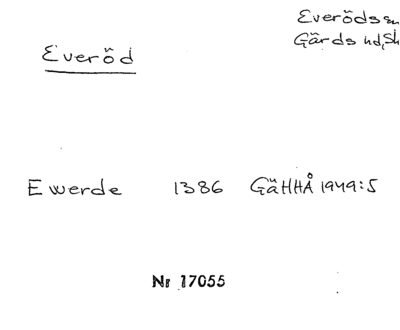 Everöds sn
Gärds hd, Sk
Everöd
Ewerde 1386 GäHHÅ 1949:5
Nr 17055